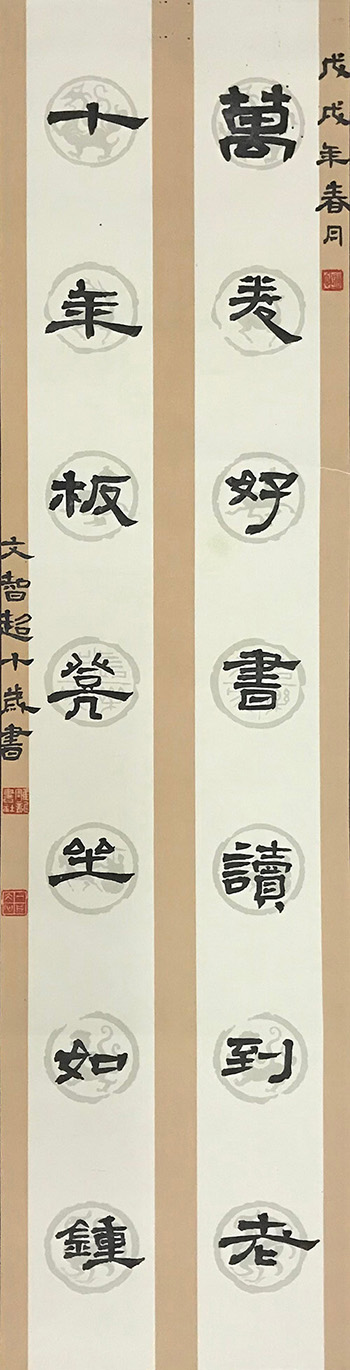 戊戌年春月
萬卷好書讀到老
十年板凳坐如鍾
文智超十歲書